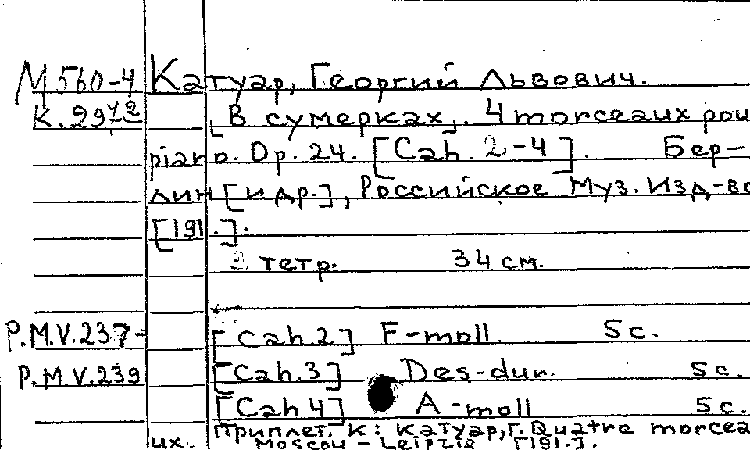 М 560-4 Катуар, Георгий Львович.
К. 29 [В сумерках]. 4 morceaux pou
piano. Op. 24. [Cah. 2-4]. Бер-
лин [и др.], Российское Муз. Изд-во
[191.].
3 тетр. 34 см.
P.M.V.237- [Cah.2] F-moll. 5 с.
P.M.V.239 [Cah.3] Des-dur. 5 с.
[Cah 4] A-moll 5 с.
Приплет. к: Катуар, Г. Quatre morcea
их. Moscou - Leipzig [191.].